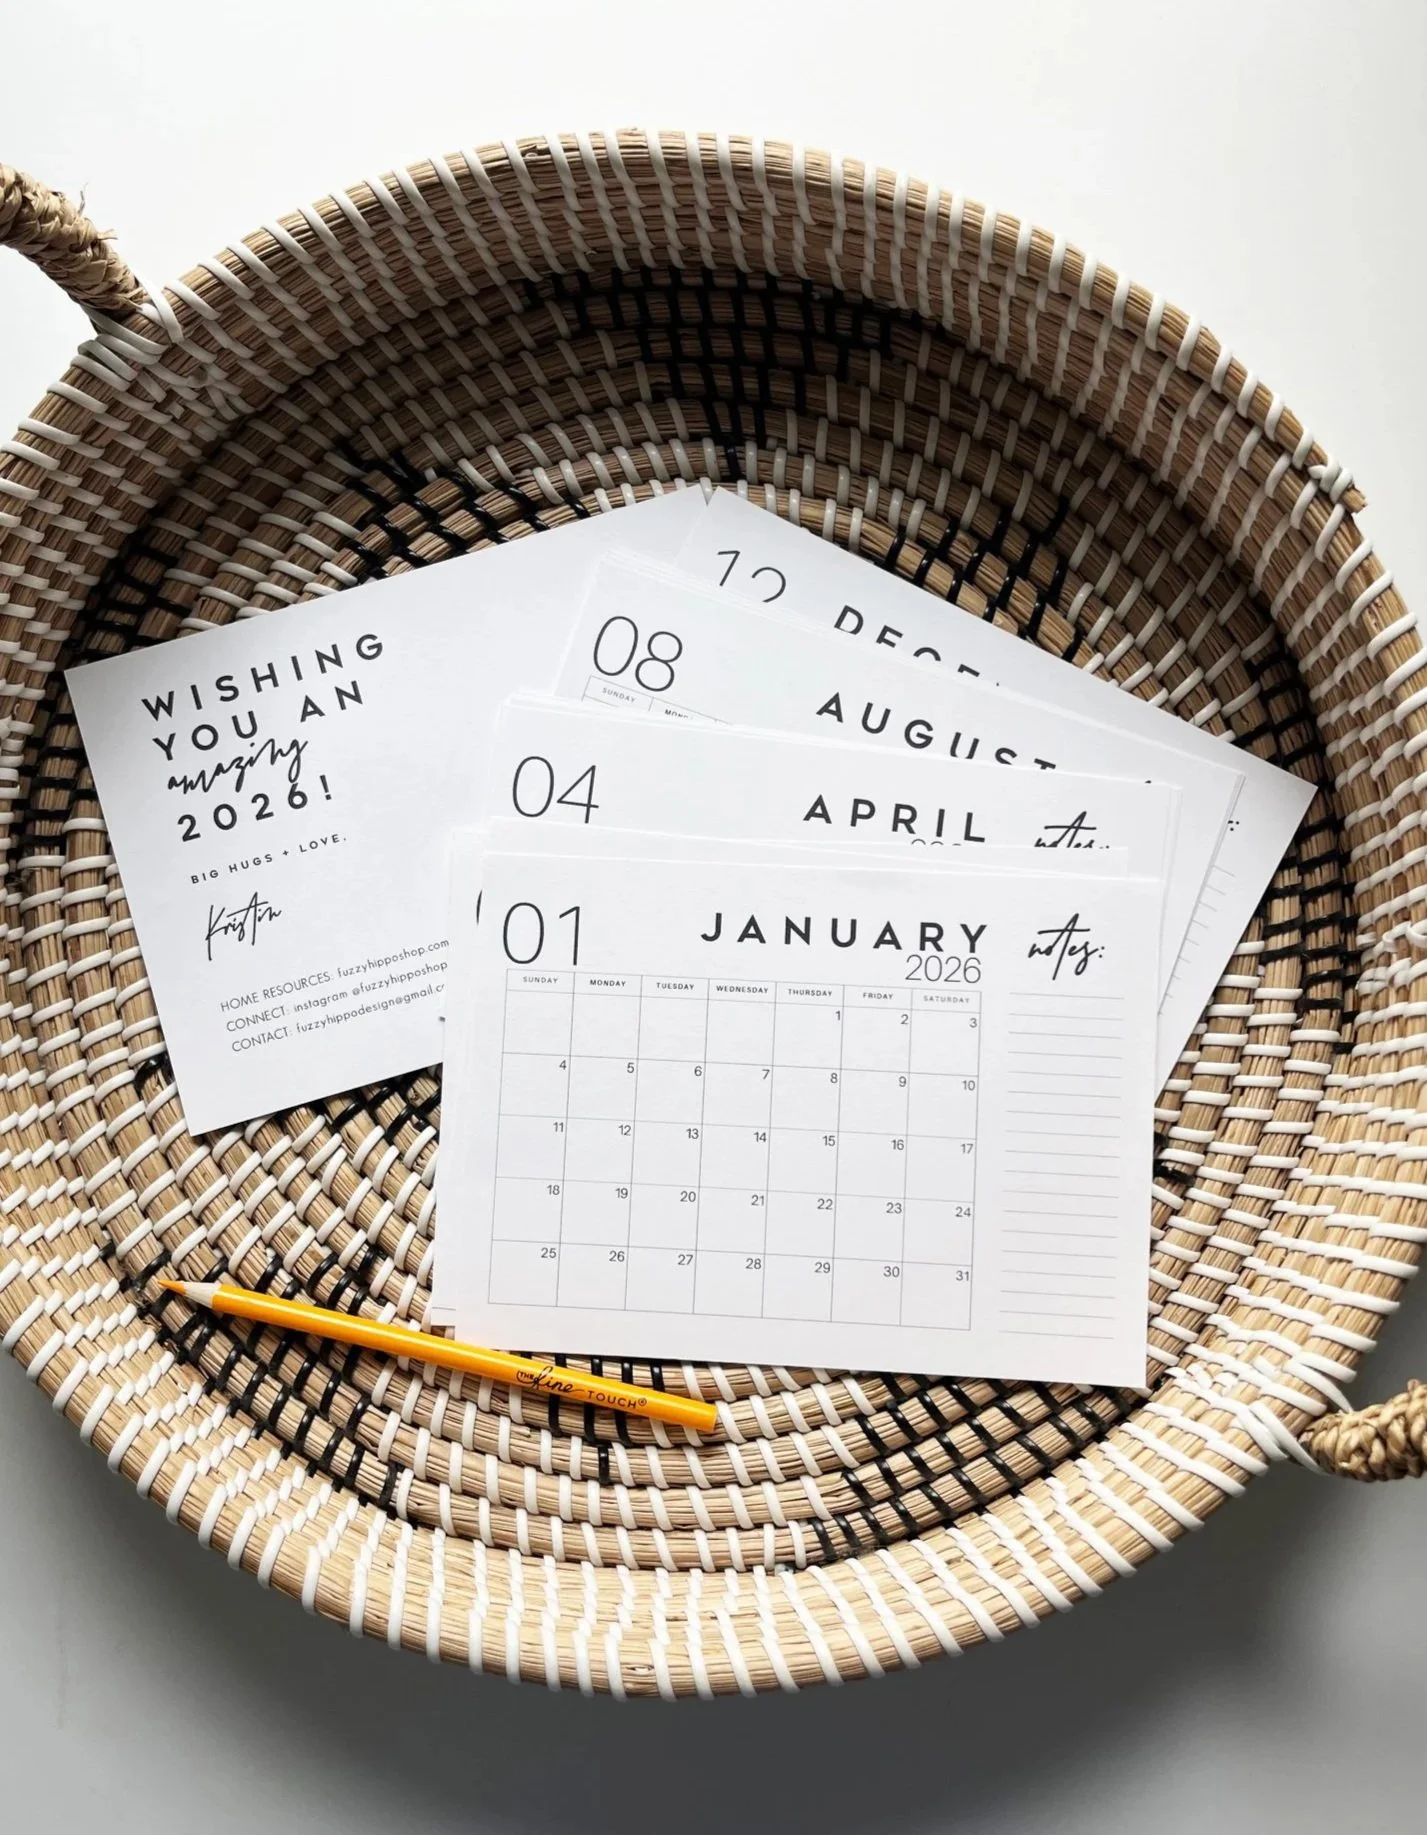 WISHING
YOU AN
amazing
2026!
BIG HUGS + LOVE,
Kristin
HOME RESOURCES: fuzzyhipposhop.com
CONNECT: instagram @fuzzyhipposhop
CONTACT: fuzzyhippodesign@gmail.c
12
08
AUGUST
SUNDAY
04
APRIL
notes:
01
JANUARY
2026
notes:
SUNDAY MONDAY TUESDAY WEDNESDAY THURSDAY FRIDAY SATURDAY
1 2 3
4 5 6 7 8 9 10
11 12 13 14 15 16 17
18 19 20 21 22 23 24
25 26 27 28 29 30 31
THE fine TOUCH®